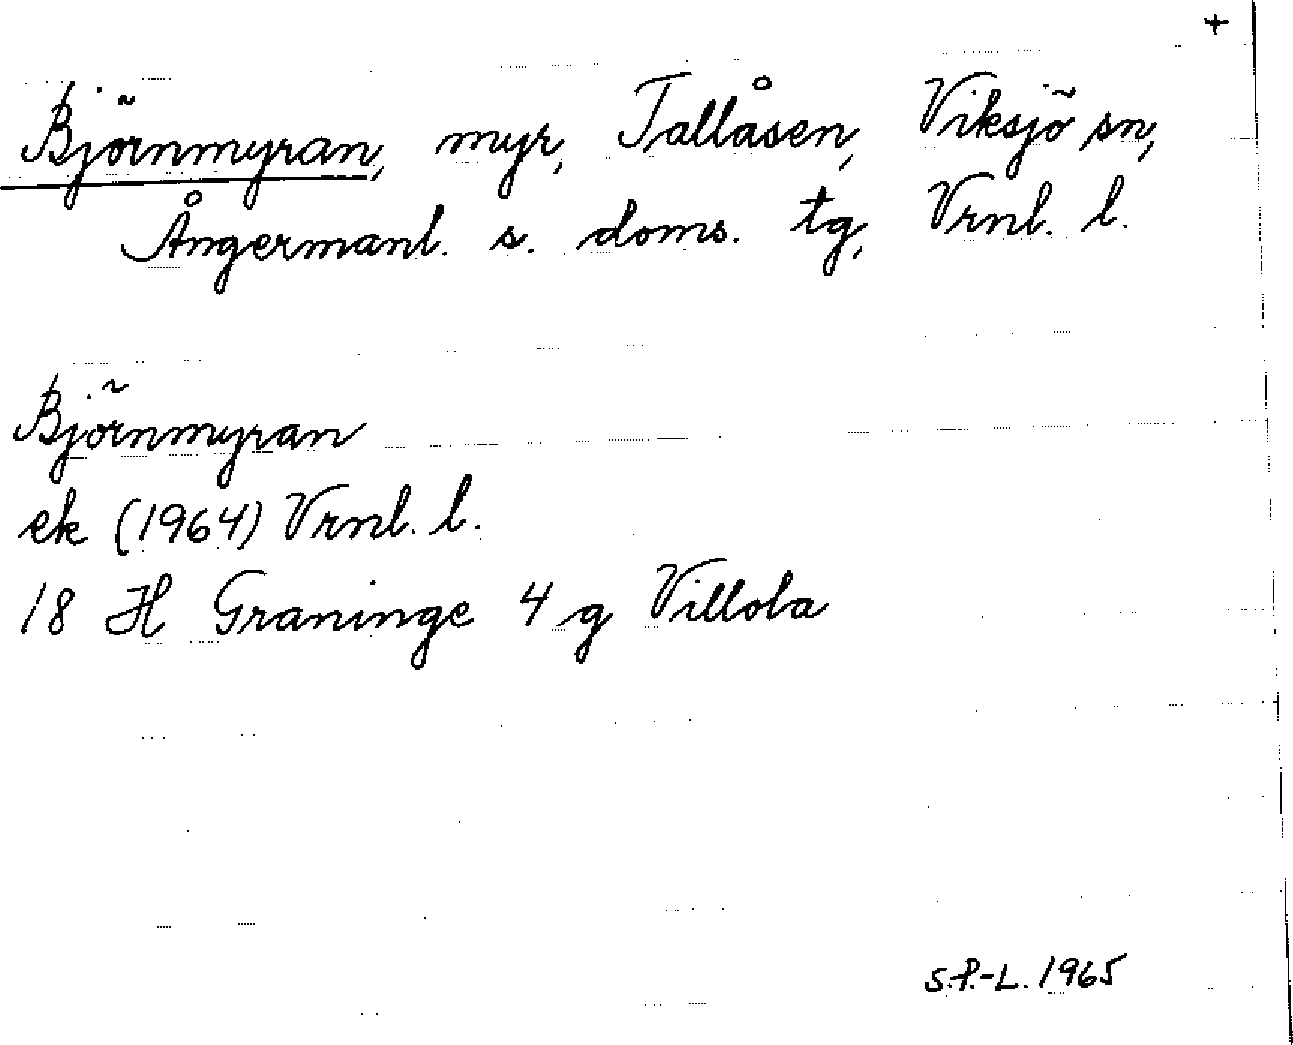 +
Björnmyran, myr, Tallåsen, Viksjö sn,
Ångermanl. s. doms. tg, Vrnl. l.
Björnmyran
ek (1964) Vrnl. l.
18 H Graninge 4 g Villola
S.P.-L. 1965